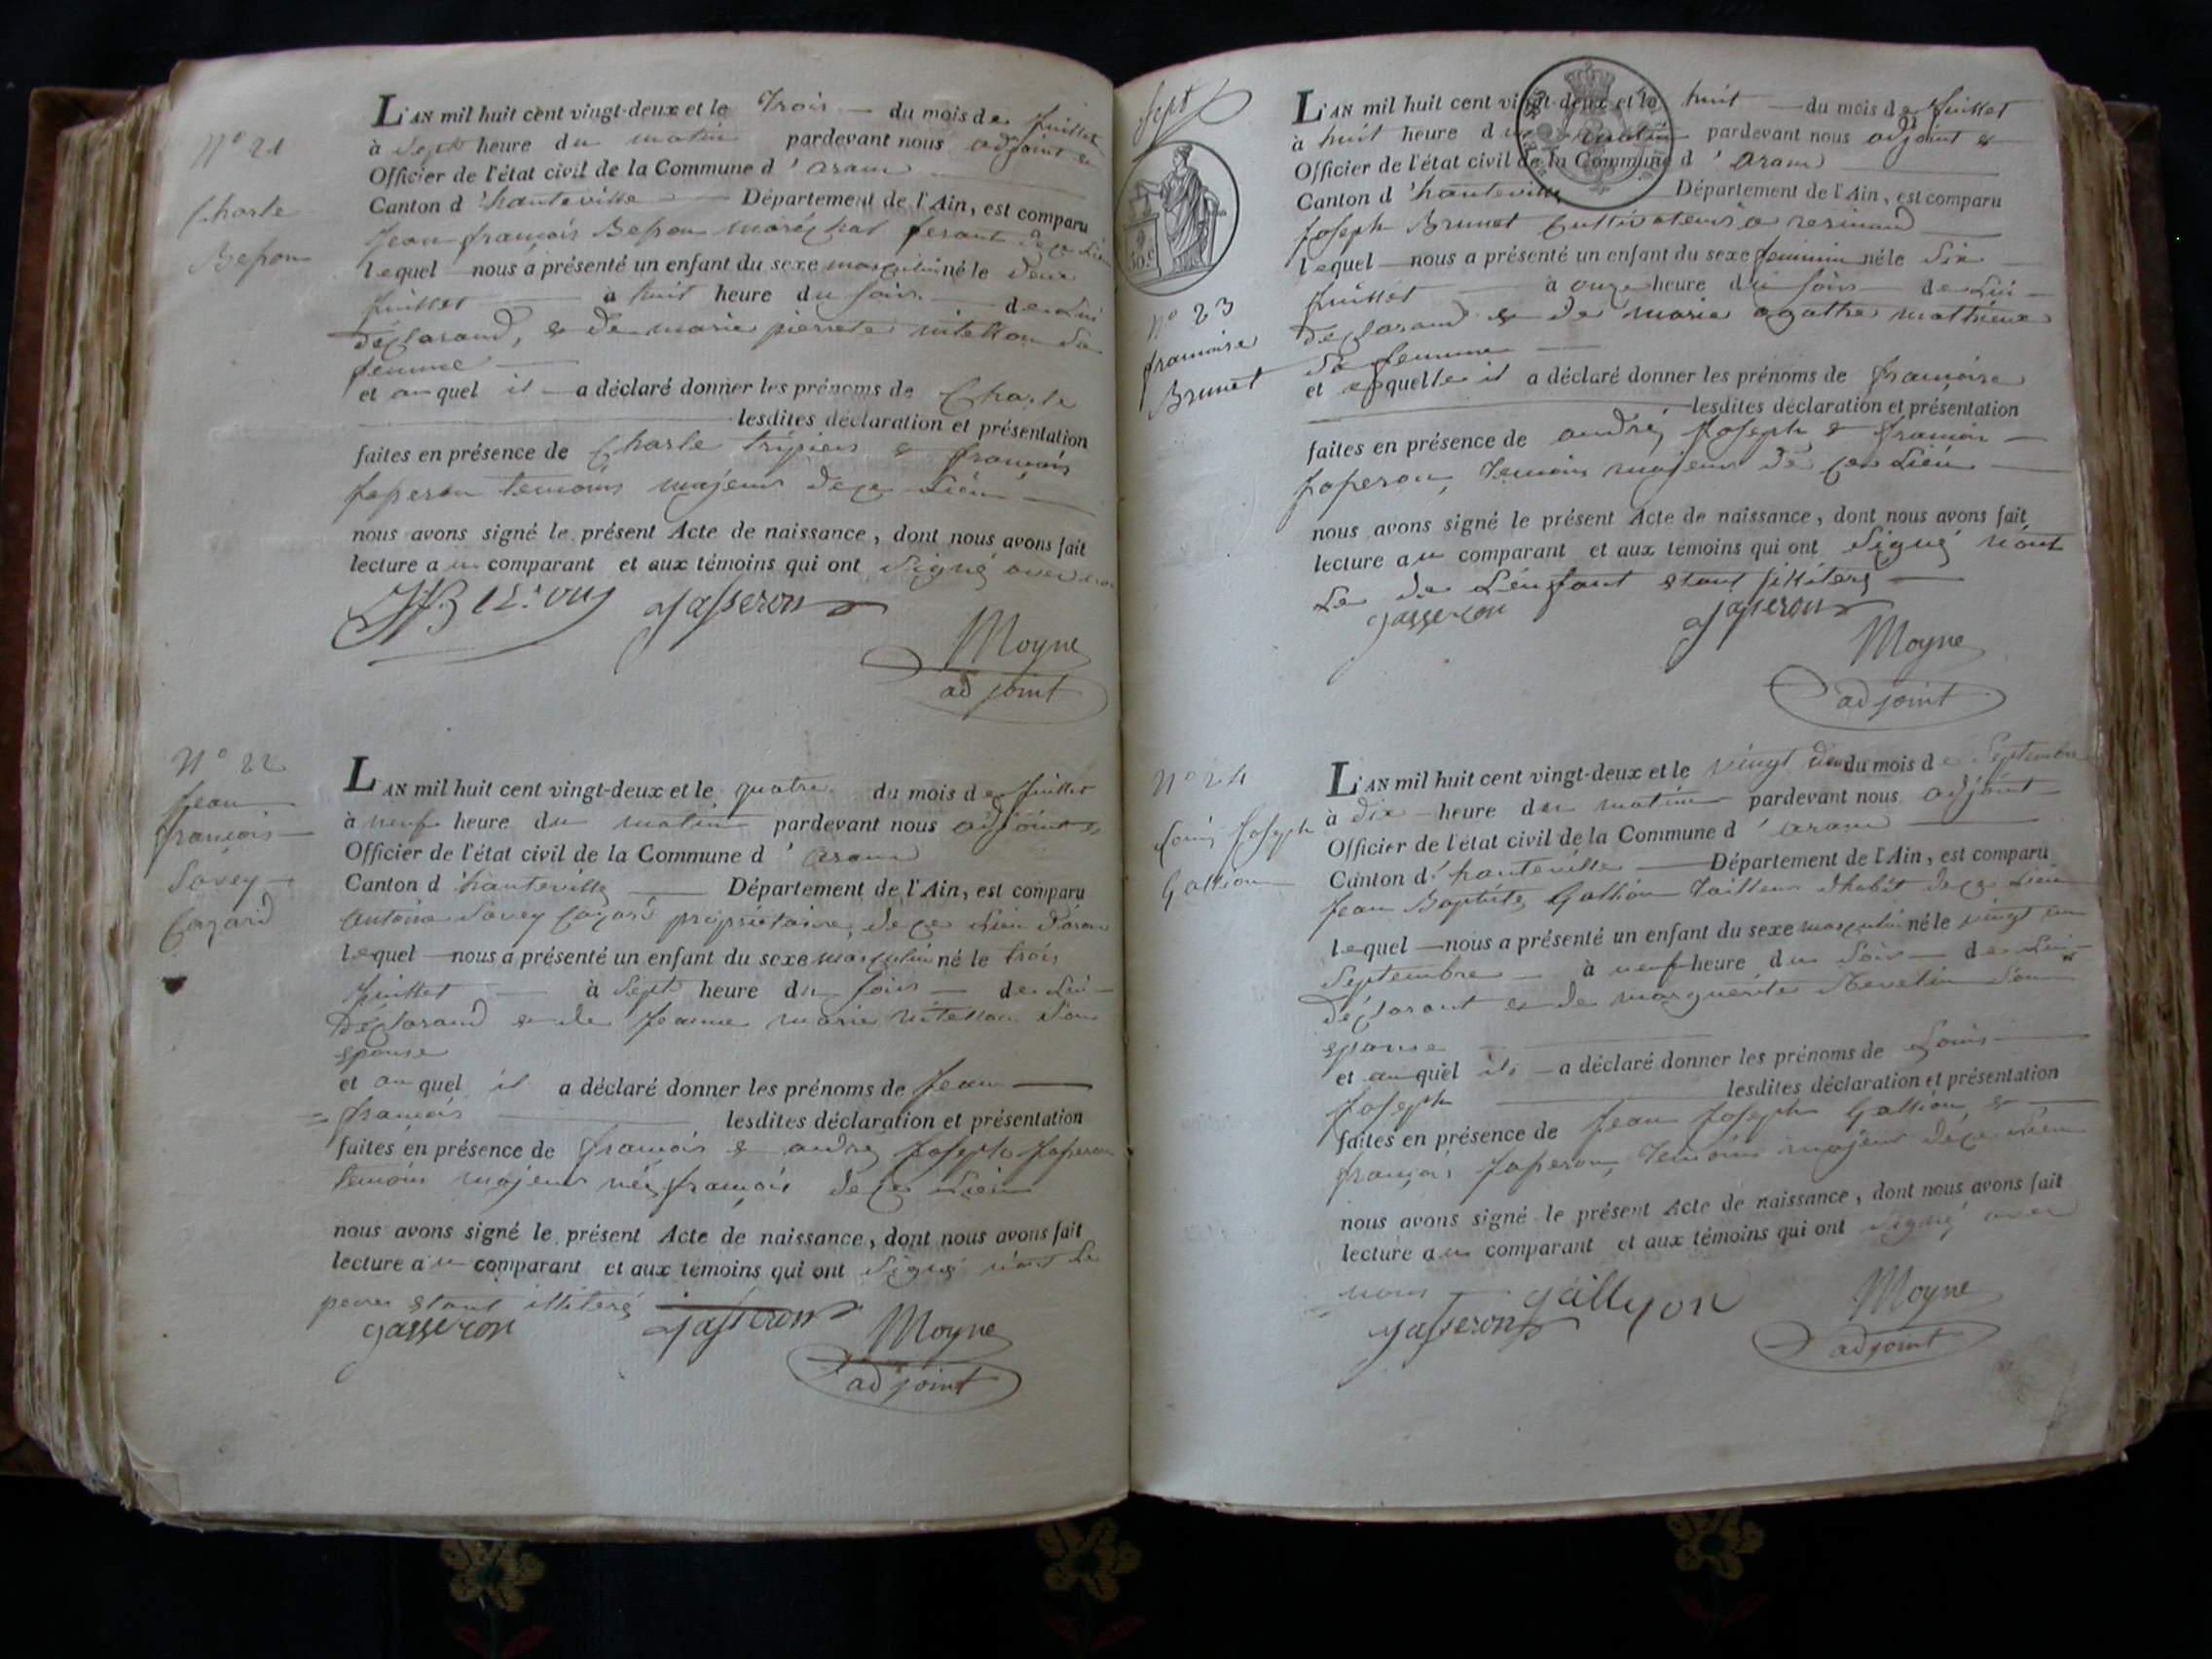 N° 21
Charle
Besson
L'AN mil huit cent vingt-deux et le Trois du mois de juillet
à Sept heure du matin pardevant nous adjoint &
Officier de l'état civil de la Commune d'aranc
Canton d'hauteville Département de l'Ain, est comparu
Jean françois Besson maréchal ferant de ce Lieu
lequel nous a présenté un enfant du sexe masculin né le deux
juillet à huit heure du soir de Lui
déclarand, & de marie pierrete sa
femme
et au quel il a déclaré donner les prénoms de Charle
lesdites déclaration et présentation
faites en présence de Charle tripier & françois
jasseron temoins majeurs de ce Lieu
nous avons signé le présent Acte de naissance, dont nous avons fait
lecture au comparant et aux témoins qui ont Signé avec nous
jasseron
Moyne
adjoint
N° 22
jean
françois
Savey
Cazard
L'AN mil huit cent vingt-deux et le quatre du mois de juillet
à neuf heure du matin pardevant nous adjoint &
Officier de l'état civil de la Commune d'aranc
Canton d'hauteville Département de l'Ain, est comparu
antoine Savey Cazard propriétaire, de ce Lieu d'aranc
lequel nous a présenté un enfant du sexe masculin né le trois
juillet à Sept heure du soir de Lui
déclarand & de jeanne marie Son
epouse
et au quel il a déclaré donner les prénoms de jean
= françois lesdites déclaration et présentation
faites en présence de françois & andré joseph jasseron
temoins majeurs françois de ce Lieu
nous avons signé le présent Acte de naissance, dont nous avons fait
lecture au comparant et aux témoins qui ont Signé non Le
pere etant illiteré
jasseron jasseron
Moyne
adjoint
Sept
50.c
N° 23
françoise
Brunet
L'AN mil huit cent vingt-deux et le huit du mois de juillet
à huit heure du matin pardevant nous adjoint &
Officier de l'état civil de la Commune d'aranc
Canton d'hauteville Département de l'Ain, est comparu
joseph Brunet Cultivateur a resinand
lequel nous a présenté un enfant du sexe feminin né le Six
juillet à onze heure du soir de Lui
declarand & de marie agathe mathieux
Sa femme
et a quelle il a déclaré donner les prénoms de françoise
lesdites déclaration et présentation
faites en présence de andré joseph & françois
jasseron, temoins majeurs de ce Lieu
nous avons signé le présent Acte de naissance, dont nous avons fait
lecture au comparant et aux témoins qui ont Signé non
Le de L'enfant etant illiteré
jasseron jasseron
Moyne
adjoint
N° 24
Louis joseph
Gallion
L'AN mil huit cent vingt-deux et le vingt deux du mois de Septembre
à dix heure du matin pardevant nous adjoint
Officier de l'état civil de la Commune d'aranc
Canton d'hauteville Département de l'Ain, est comparu
jean Baptiste Gallion Tailleur d'habit de ce Lieu
lequel nous a présenté un enfant du sexe masculin né le vingt un
Septembre à neuf heure du soir de Lui
déclarant & de marguerite Son
epouse
et au quel il a déclaré donner les prénoms de Louis
joseph lesdites déclaration et présentation
faites en présence de jean joseph Gallion, &
françois jasseron, temoins majeurs de ce Lieu
nous avons signé le présent Acte de naissance, dont nous avons fait
lecture au comparant et aux témoins qui ont Signé avec
= nous
jasseron gallyon
Moyne
adjoint